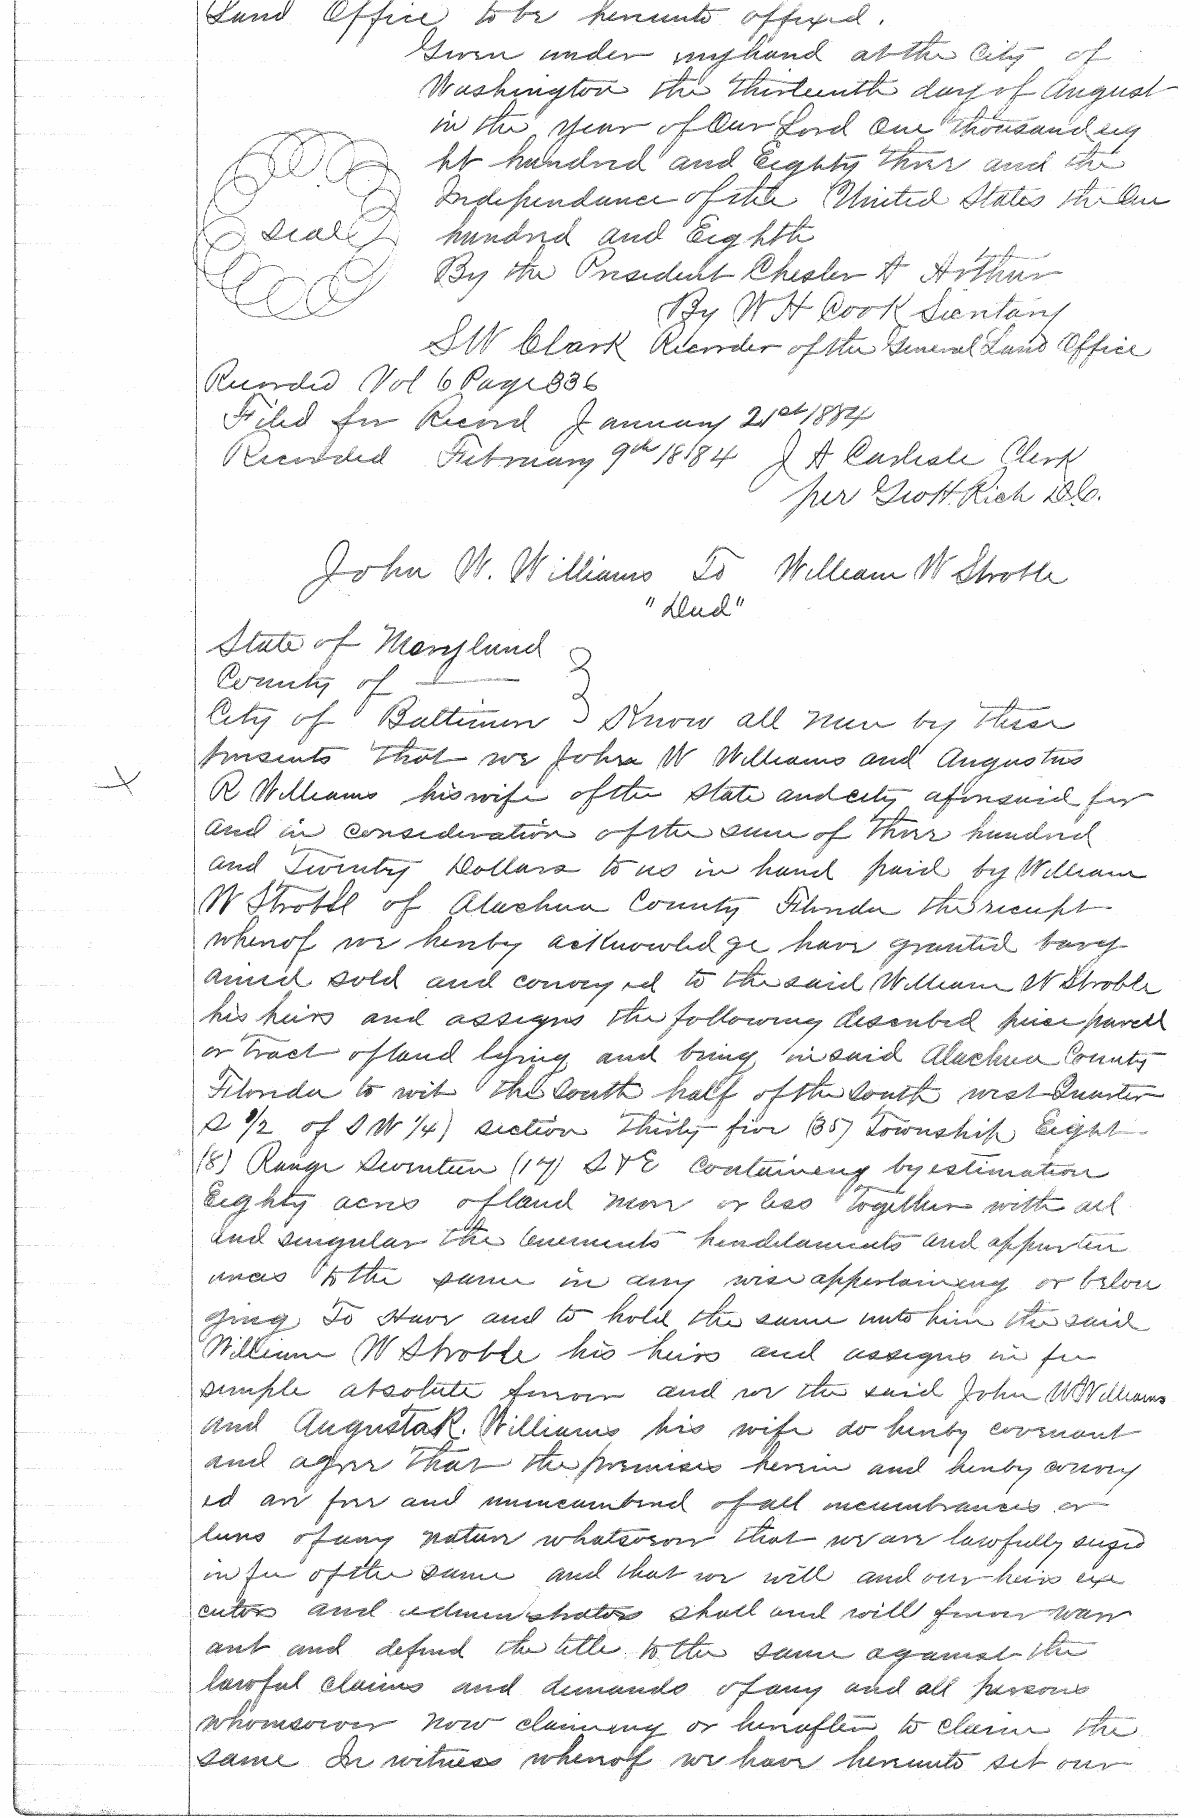 Land Office to be hereunto affixed.
Given under my hand at the City of
Washington the thirteenth day of August
in the year of Our Lord One thousand eig
ht hundred and Eighty three and the
Independance of the United States the One
hundred and Eighth
seal
By the President Chester A Arthur
By W H Cook Secretary
S W Clark Recorder of the General Land Office
Recorded Vol 6 Page 336
Filed for Record January 21st 1884
Recorded February 9th 1884 J A Carlisle Clerk
per Geo H. Rich D.C.
John W. Williams To William W Stroble
"Deed"
State of Maryland
County of ———
City of Baltimore } Know all men by these
presents that we John W Williams and Augustus
R Williams his wife of the state and city aforesaid for
and in consideration of the sum of three hundred
and Twenty Dollars to us in hand paid by William
W Stroble of Alachua County Florida the receipt
whereof we hereby acknowledge have granted barg
ained sold and conveyed to the said William W Stroble
his heirs and assigns the following described piece parcell
or tract of land lying and being in said Alachua County
Florida to wit the South half of the South west Quarter
S 1/2 of S W 1/4) section Thirty five (35) Township Eight
(8) Range Seventeen (17) S & E containing by estimation
Eighty acres of land more or less Together with all
and singular the tenements hereditaments and appurten
ances to the same in any wise appertaining or belon
ging To Have and to hold the same unto him the said
William W Stroble his heirs and assigns in fee
simple absolute forever and we the said John W Williams
and Augusta R. Williams his wife do hereby covenant
and agree that the premises herein and hereby convey
ed are free and unincumbered of all incumbrances or
liens of any nature whatsoever that we are lawfully seized
in fee of the same and that we will and our heirs exe
cutors and administrators shall and will forever warr
ant and defend the title to the same against the
lawful claims and demands of any and all persons
whomsoever now claiming or hereafter to claim the
same In witness whereof we have hereunto set our